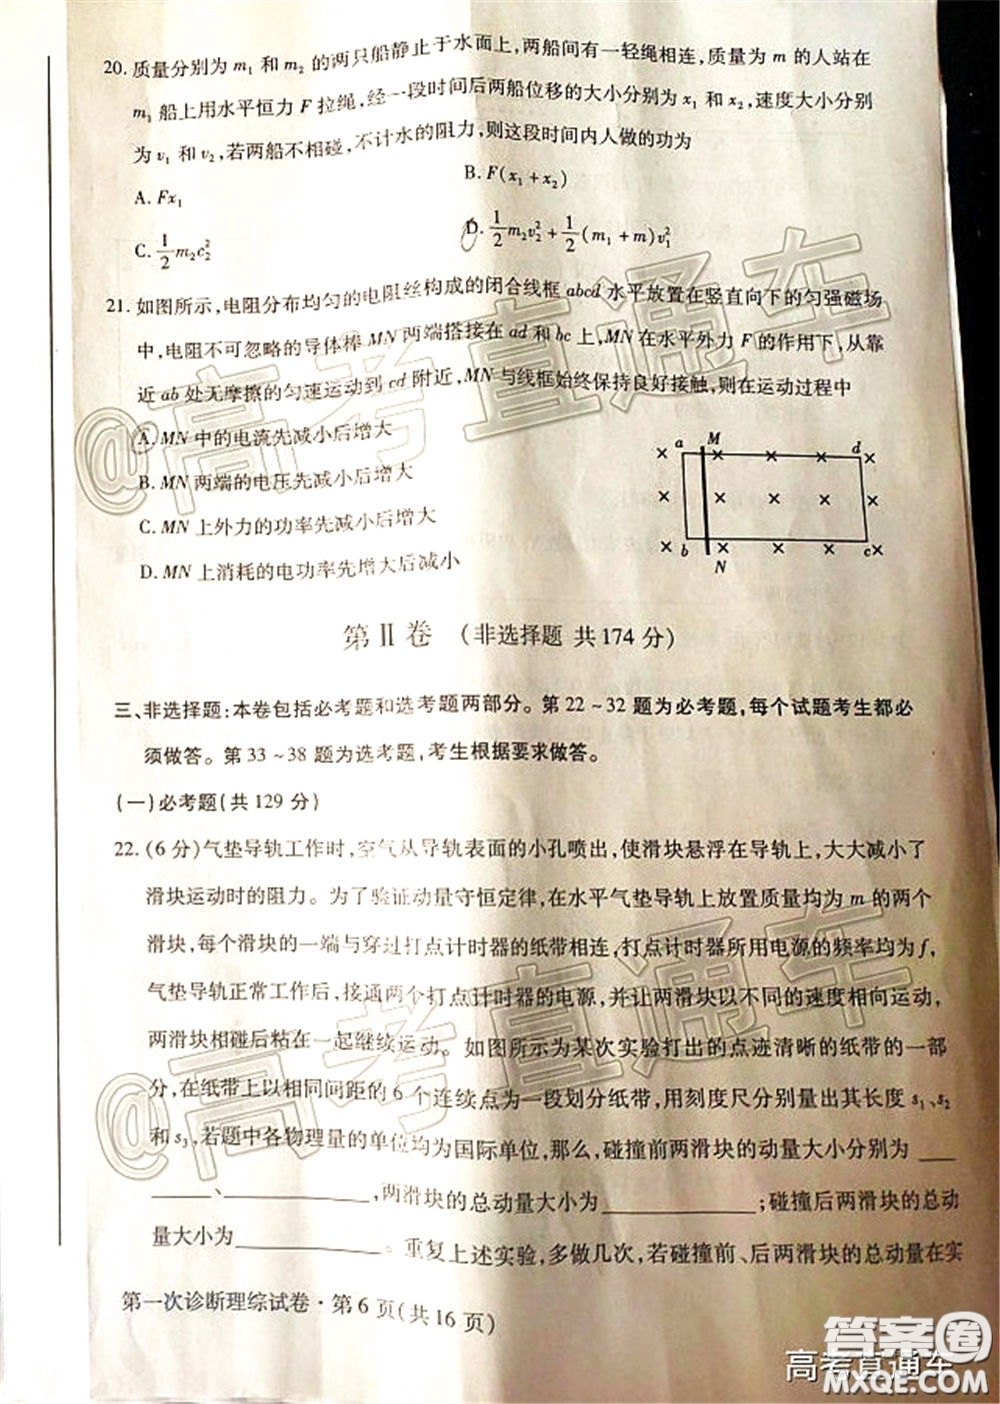 20. 质量分别为 m₁ 和 m₂ 的两只船静止于水面上,两船间有一轻绳相连,质量为 m 的人站在
m₁ 船上用水平恒力 F 拉绳,经一段时间后两船位移的大小分别为 x₁ 和 x₂,速度大小分别
为 v₁ 和 v₂,若两船不相碰,不计水的阻力,则这段时间内人做的功为
A. Fx₁
B. F(x₁ + x₂)
C. 1/2 m₂c₂²
D. 1/2 m₂v₂² + 1/2 (m₁ + m)v₁²
21. 如图所示,电阻分布均匀的电阻丝构成的闭合线框 abcd 水平放置在竖直向下的匀强磁场
中,电阻不可忽略的导体棒 MN 两端搭接在 ad 和 bc 上,MN 在水平外力 F 的作用下,从靠
近 ab 处无摩擦的匀速运动到 cd 附近,MN 与线框始终保持良好接触,则在运动过程中
A. MN 中的电流先减小后增大
B. MN 两端的电压先减小后增大
C. MN 上外力的功率先减小后增大
D. MN 上消耗的电功率先增大后减小
a M d
b N c
第 Ⅱ 卷 (非选择题 共 174 分)
三、非选择题:本卷包括必考题和选考题两部分。第 22 ~ 32 题为必考题,每个试题考生都必
须做答。第 33 ~ 38 题为选考题,考生根据要求做答。
(一)必考题(共 129 分)
22. (6 分)气垫导轨工作时,空气从导轨表面的小孔喷出,使滑块悬浮在导轨上,大大减小了
滑块运动时的阻力。为了验证动量守恒定律,在水平气垫导轨上放置质量均为 m 的两个
滑块,每个滑块的一端与穿过打点计时器的纸带相连,打点计时器所用电源的频率均为 f,
气垫导轨正常工作后,接通两个打点计时器的电源,并让两滑块以不同的速度相向运动,
两滑块相碰后粘在一起继续运动。如图所示为某次实验打出的点迹清晰的纸带的一部
分,在纸带上以相同间距的 6 个连续点为一段划分纸带,用刻度尺分别量出其长度 s₁、s₂
和 s₃,若题中各物理量的单位均为国际单位,那么,碰撞前两滑块的动量大小分别为 ___
_____、__________,两滑块的总动量大小为__________;碰撞后两滑块的总动
量大小为__________。重复上述实验,多做几次,若碰撞前、后两滑块的总动量在实
第一次诊断理综试卷 · 第 6 页(共 16 页)
@高考直通车
@高考直通车
高考直通车
答案圈
MXQE.COM